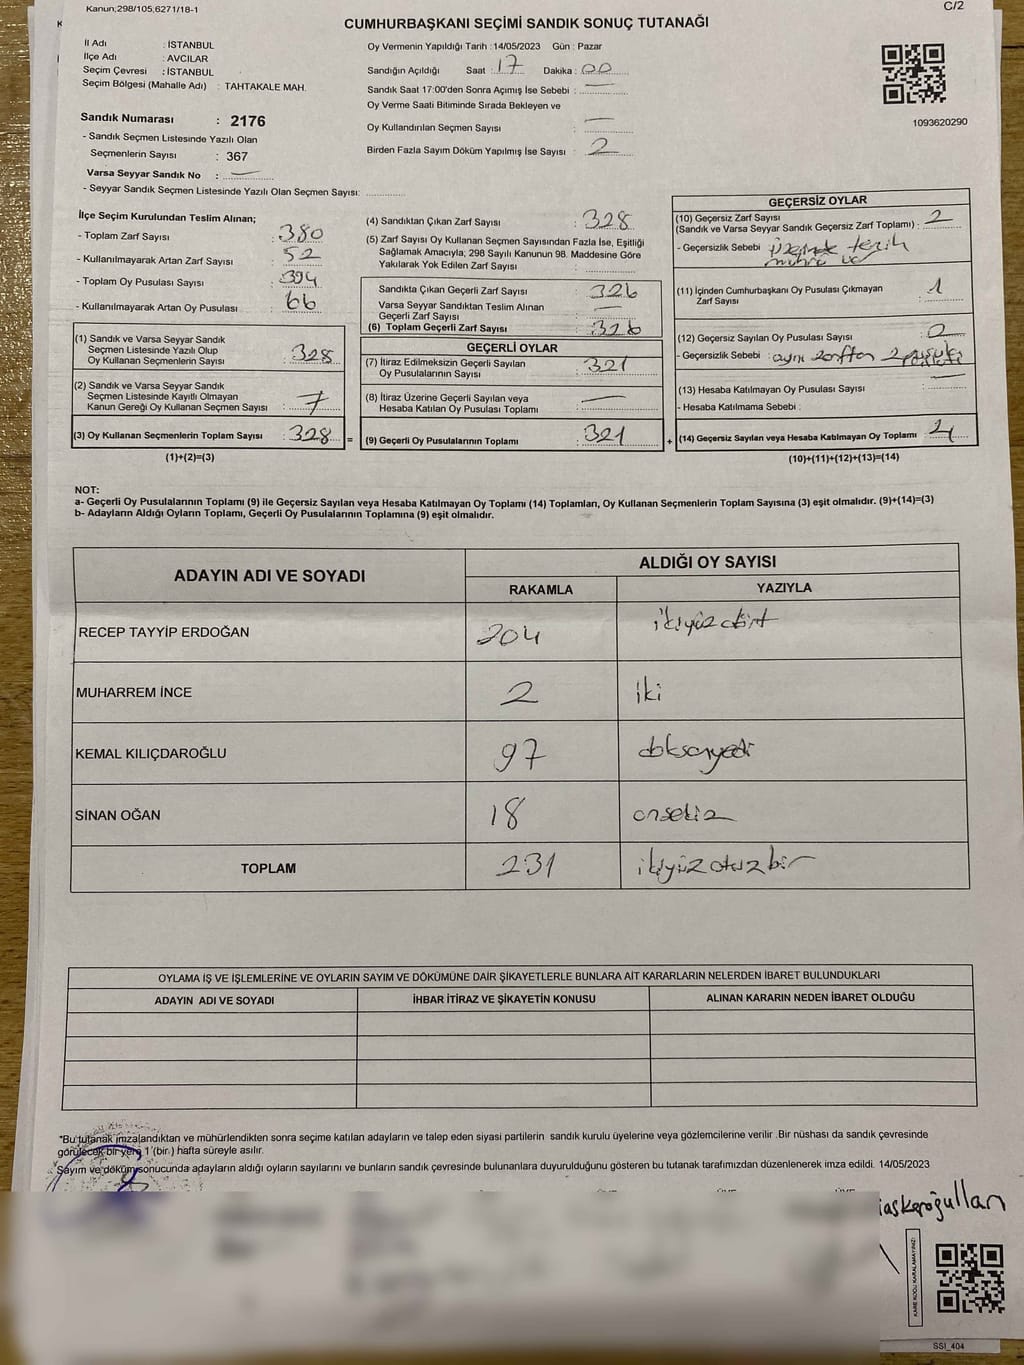 Kanun;298/105,6271/18-1
C/2
CUMHURBAŞKANI SEÇİMİ SANDIK SONUÇ TUTANAĞI
İl Adı : İSTANBUL
İlçe Adı : AVCILAR
Seçim Çevresi : İSTANBUL
Seçim Bölgesi (Mahalle Adı) : TAHTAKALE MAH.
Oy Vermenin Yapıldığı Tarih :14/05/2023 Gün : Pazar
Sandığın Açıldığı Saat : 17 Dakika : 00
Sandık Saat 17:00'den Sonra Açımış İse Sebebi : —
Oy Verme Saati Bitiminde Sırada Bekleyen ve
Oy Kullandırılan Seçmen Sayısı : —
Birden Fazla Sayım Döküm Yapılmış İse Sayısı : 2
1093620290
Sandık Numarası : 2176
- Sandık Seçmen Listesinde Yazılı Olan
Seçmenlerin Sayısı : 367
Varsa Seyyar Sandık No : —
- Seyyar Sandık Seçmen Listesinde Yazılı Olan Seçmen Sayısı:
İlçe Seçim Kurulundan Teslim Alınan;
- Toplam Zarf Sayısı : 380
- Kullanılmayarak Artan Zarf Sayısı : 52
- Toplam Oy Pusulası Sayısı : 394
- Kullanılmayarak Artan Oy Pusulası : 66
(1) Sandık ve Varsa Seyyar Sandık
Seçmen Listesinde Yazılı Olup
Oy Kullanan Seçmenlerin Sayısı : 328
(2) Sandık ve Varsa Seyyar Sandık
Seçmen Listesinde Kayıtlı Olmayan
Kanun Gereği Oy Kullanan Seçmen Sayısı : 7
(3) Oy Kullanan Seçmenlerin Toplam Sayısı : 328 =
(1)+(2)=(3)
(4) Sandıktan Çıkan Zarf Sayısı : 328
(5) Zarf Sayısı Oy Kullanan Seçmen Sayısından Fazla İse, Eşitliği
Sağlamak Amacıyla; 298 Sayılı Kanunun 98. Maddesine Göre
Yakılarak Yok Edilen Zarf Sayısı :
Sandıkta Çıkan Geçerli Zarf Sayısı : 326
Varsa Seyyar Sandıktan Teslim Alınan
Geçerli Zarf Sayısı : —
(6) Toplam Geçerli Zarf Sayısı : 326
GEÇERLİ OYLAR
(7) İtiraz Edilmeksizin Geçerli Sayılan
Oy Pusulalarının Sayısı : 321
(8) İtiraz Üzerine Geçerli Sayılan veya
Hesaba Katılan Oy Pusulası Toplamı : —
(9) Geçerli Oy Pusulalarının Toplamı : 321 +
GEÇERSİZ OYLAR
(10) Geçersiz Zarf Sayısı
(Sandık ve Varsa Seyyar Sandık Geçersiz Zarf Toplamı) : 2
- Geçersizlik Sebebi : üzerinde tercih
(11) İçinden Cumhurbaşkanı Oy Pusulası Çıkmayan
Zarf Sayısı : 1
(12) Geçersiz Sayılan Oy Pusulası Sayısı :
- Geçersizlik Sebebi : aynı zarftan 2 pusula
(13) Hesaba Katılmayan Oy Pusulası Sayısı : —
- Hesaba Katılmama Sebebi :
(14) Geçersiz Sayılan veya Hesaba Katılmayan Oy Toplamı :
(10)+(11)+(12)+(13)=(14)
NOT:
a- Geçerli Oy Pusulalarının Toplamı (9) ile Geçersiz Sayılan veya Hesaba Katılmayan Oy Toplamı (14) Toplamları, Oy Kullanan Seçmenlerin Toplam Sayısına (3) eşit olmalıdır. (9)+(14)=(3)
b- Adayların Aldığı Oyların Toplamı, Geçerli Oy Pusulalarının Toplamına (9) eşit olmalıdır.
ADAYIN ADI VE SOYADI
ALDIĞI OY SAYISI
RAKAMLA YAZIYLA
RECEP TAYYİP ERDOĞAN 204 ikiyüzdört
MUHARREM İNCE 2 iki
KEMAL KILIÇDAROĞLU 97 doksanyedi
SİNAN OĞAN 18 onsekiz
TOPLAM 231 ikiyüzotuzbir
OYLAMA İŞ VE İŞLEMLERİNE VE OYLARIN SAYIM VE DÖKÜMÜNE DAİR ŞİKAYETLERLE BUNLARA AİT KARARLARIN NELERDEN İBARET BULUNDUKLARI
ADAYIN ADI VE SOYADI İHBAR İTİRAZ VE ŞİKAYETİN KONUSU ALINAN KARARIN NEDEN İBARET OLDUĞU
*Bu tutanak imzalandıktan ve mühürlendikten sonra seçime katılan adayların ve talep eden siyasi partilerin sandık kurulu üyelerine veya gözlemcilerine verilir .Bir nüshası da sandık çevresinde
görülecek bir yere 1 (bir ) hafta süreyle asılır.
Sayım ve döküm sonucunda adayların aldığı oyların sayılarını ve bunların sandık çevresinde bulunanlara duyurulduğunu gösteren bu tutanak tarafımızdan düzenlenerek imza edildi. 14/05/2023
KARE KODU KARALAMAYINIZ!
SSI_404